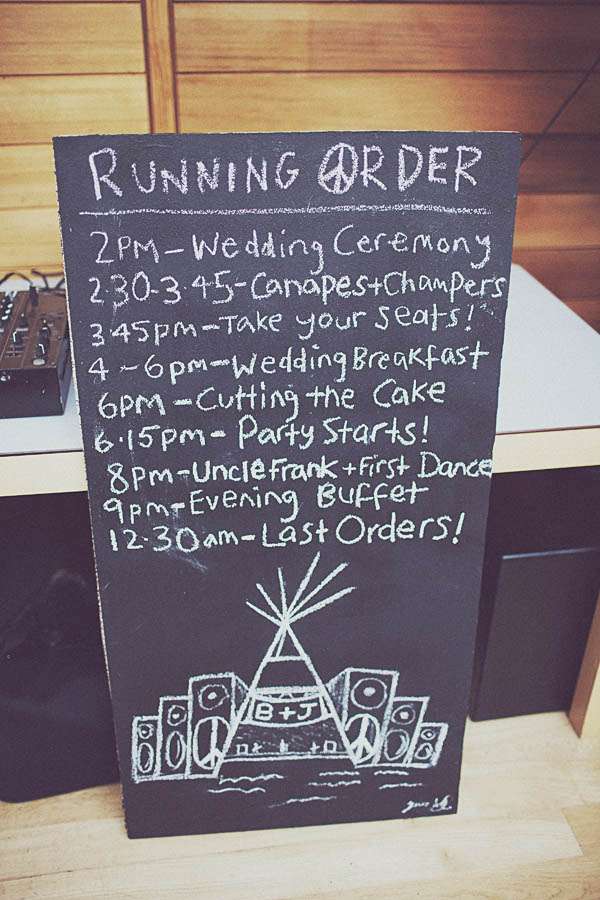 RUNNING ORDER
2PM-Wedding Ceremony
2.30-3.45-Canapes+Champers
3.45pm-Take your seats!
4-6pm-Wedding Breakfast
6pm-Cutting the Cake
6.15pm-Party Starts!
8pm-Uncle Frank+First Dance
9pm-Evening Buffet
12.30am-Last Orders!
B+J